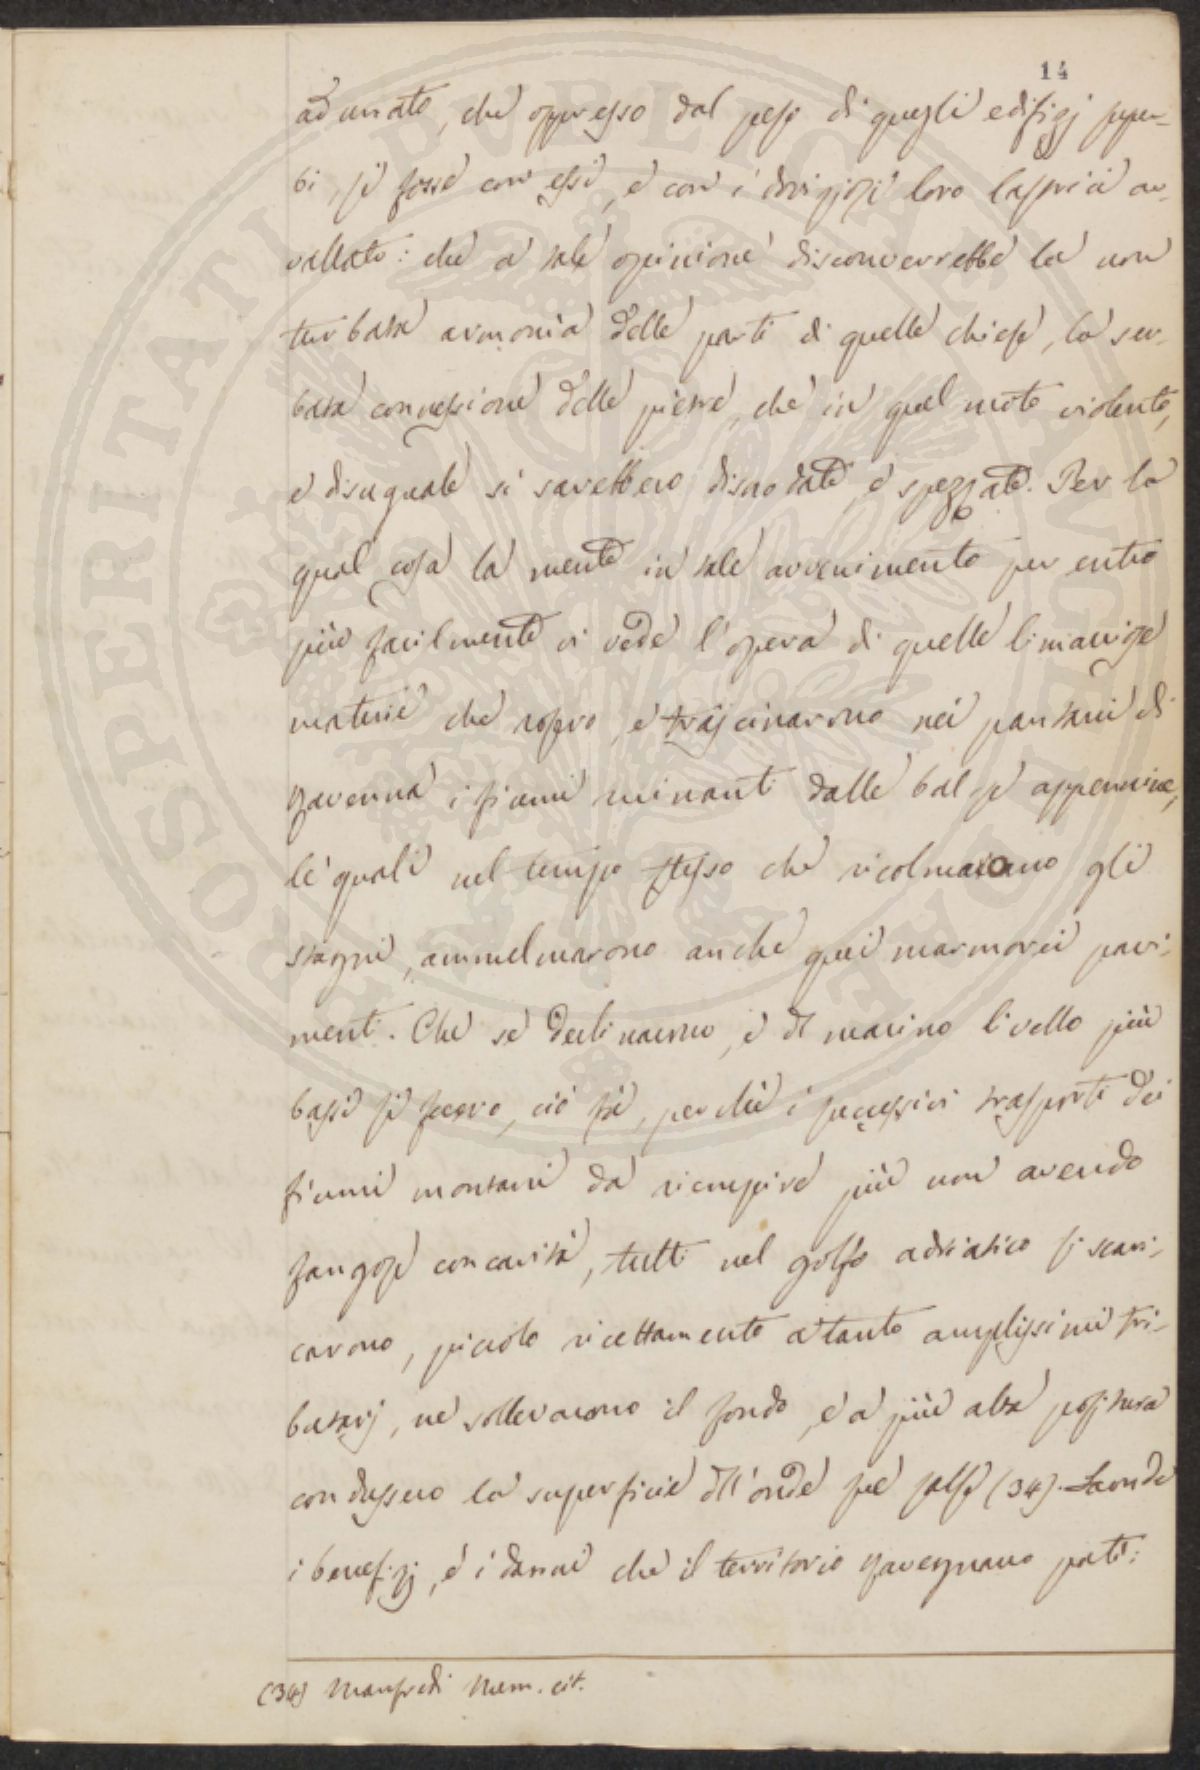 14
adunato, che oppresso dal peso di quegli edifizj super-
bi, si fosse con essi, e con i doviziosi loro lastrici av-
vallato: che a tale opinione disconverrebbe la non
turbata armonia delle parti di quelle chiese, la ser-
bata connessione delle pietre, che in quel moto violento,
e disuguale si sarebbero disnodate, e spezzate. Per la
qual cosa la mente in tale avvenimento per entro
più facilmente vi vede l'opera di quelle limacciose
materie che rosero, e trascinarono nei pantani di
Ravenna i fiumi ruinanti dalle balze appennine,
le quali nel tempo stesso che ricolmarono gli
stagni, ammelmarono anche quei marmorei pavi-
menti. Che se declinarono, e del marino livello più
bassi si fecero, ciò fu, perché i successivi trasporti dei
fiumi montani da riempire più non avendo
fangose concavità, tutti nel golfo adriatico si scari-
carono, piccolo ricettamento a tanto amplissimi tri-
butarj, ne sollevarono il fondo, e a più alta positura
condussero la superficie dell'onde sue salse (34). Laonde
i benefizj, e i danni che il territorio Ravegnano patì:
(34) Manfredi Mem. cit.
PROSPERITATI PUBLICAE AUGENDAE